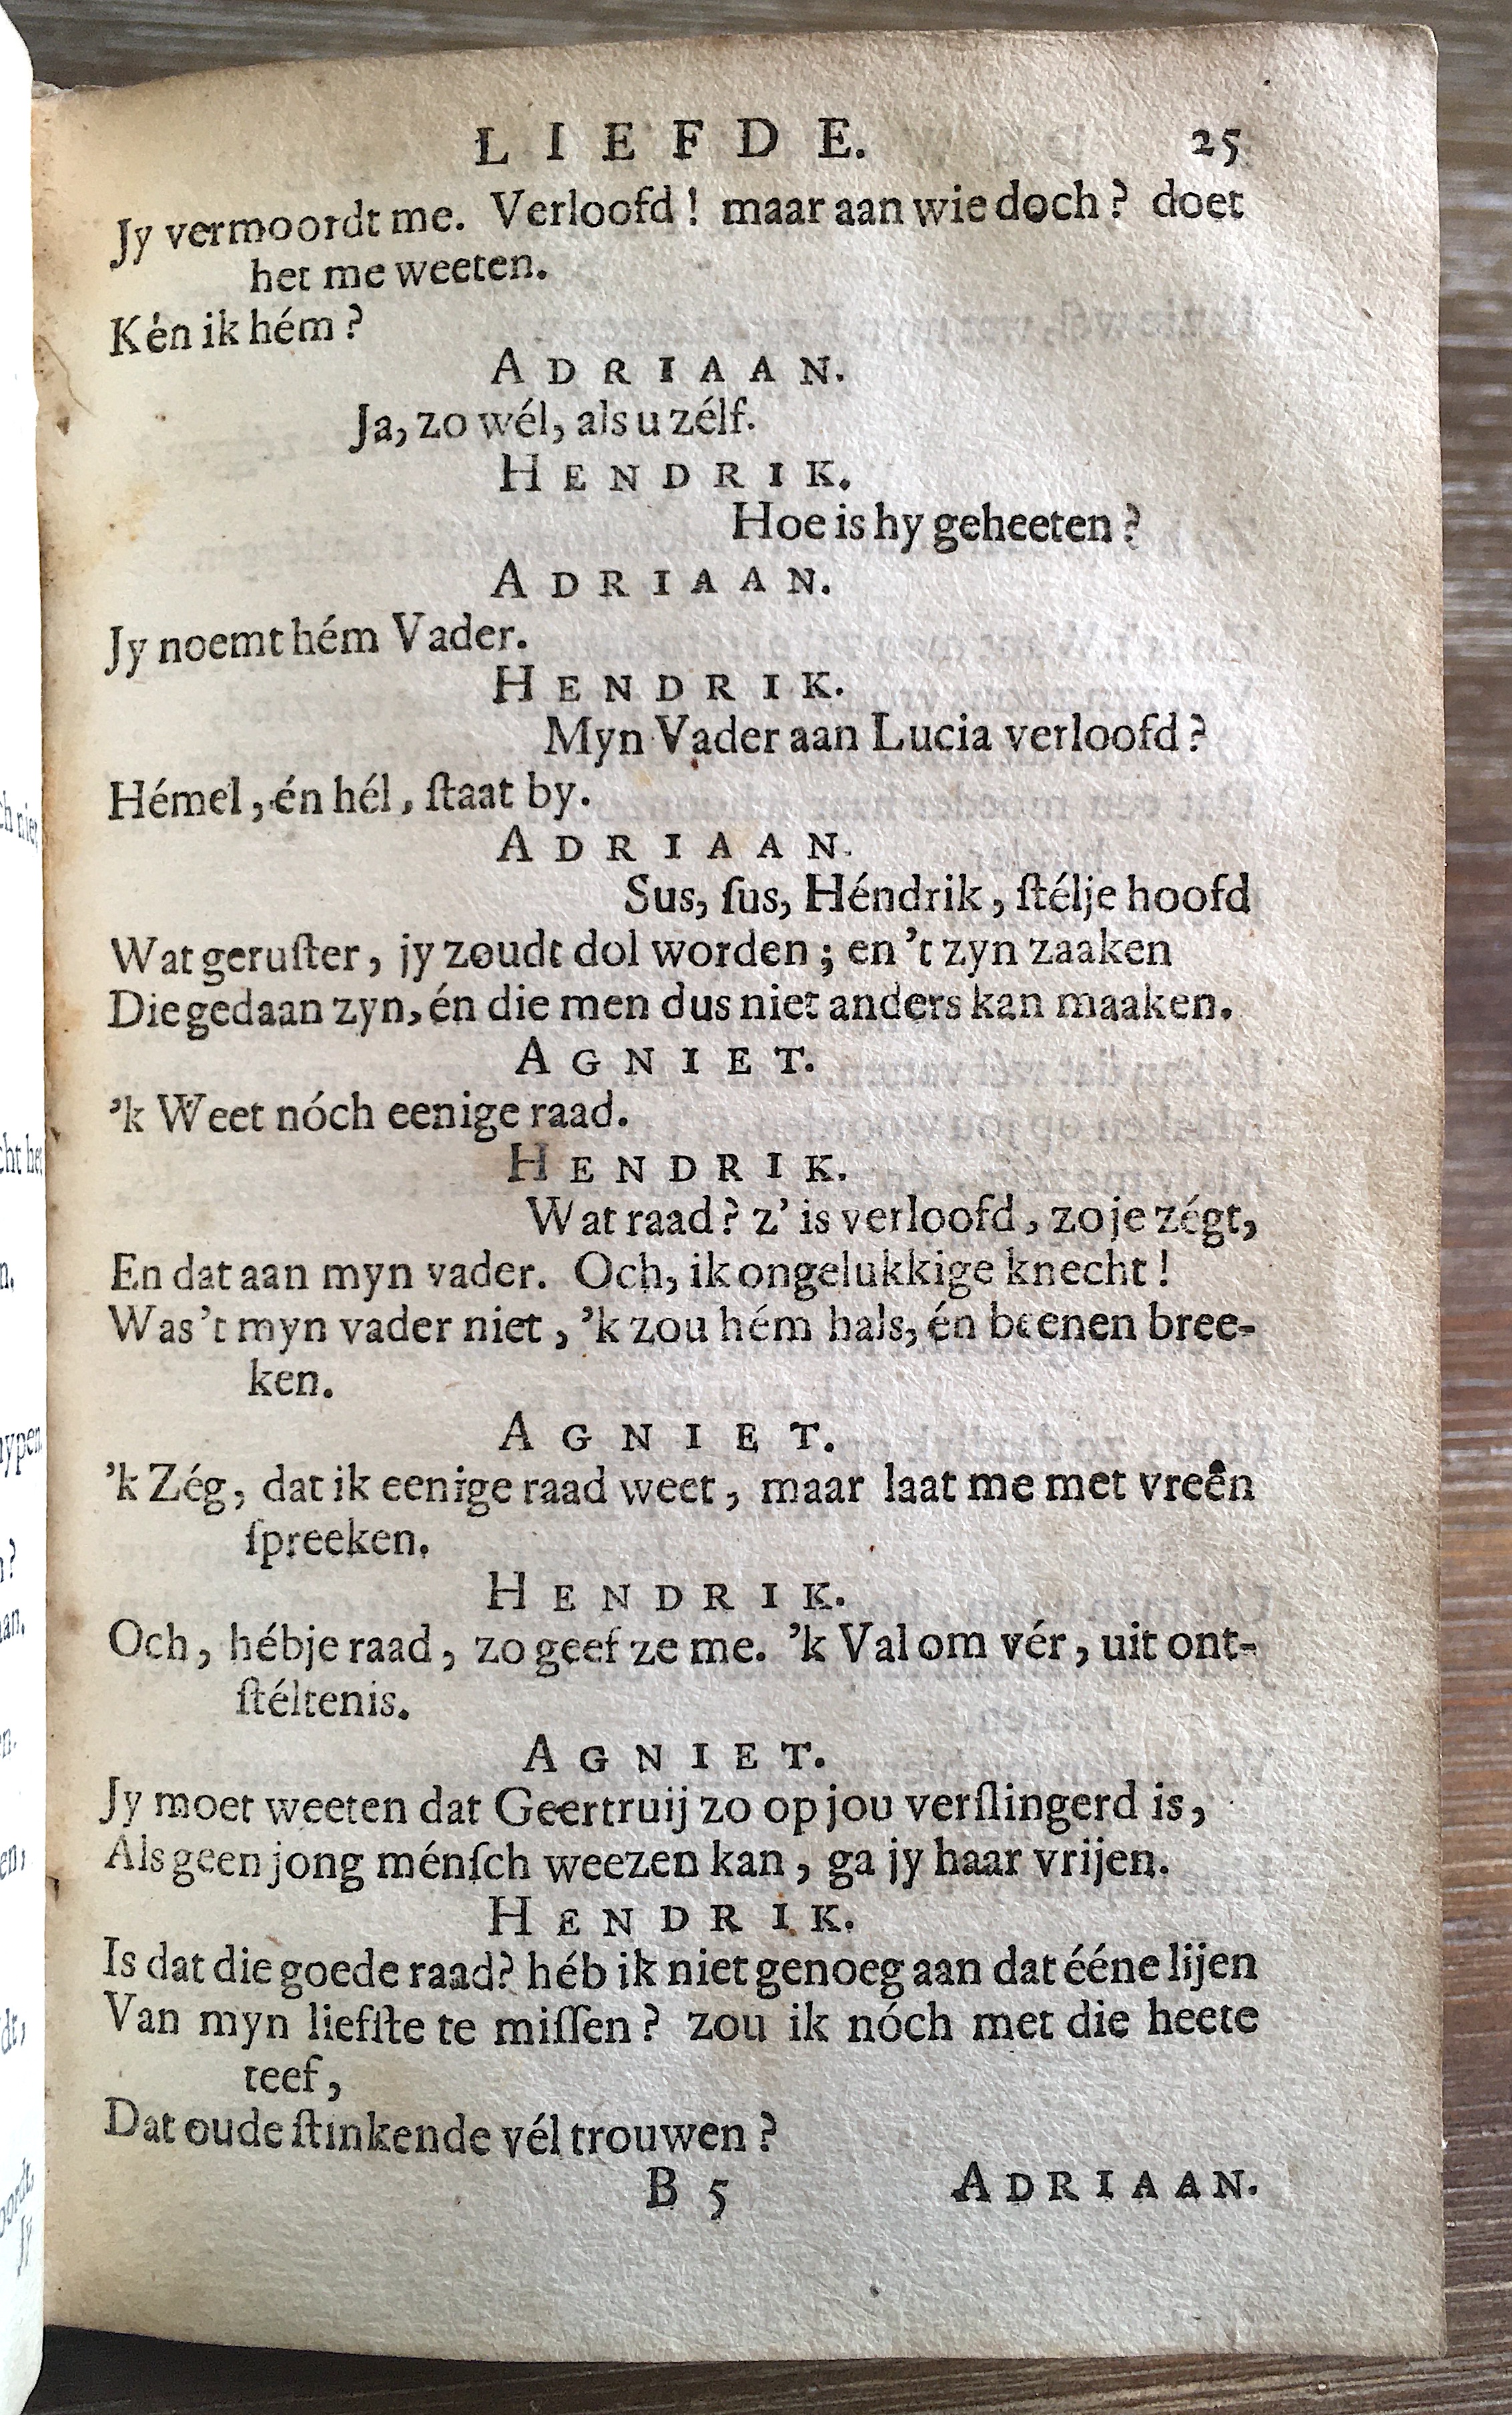 LIEFDE. 25
Jy vermoordt me. Verloofd! maar aan wie doch? doet
het me weeten.
Kén ik hém?
ADRIAAN.
Ja, zo wél, als u zélf.
HENDRIK.
Hoe is hy geheeten?
ADRIAAN.
Jy noemt hém Vader.
HENDRIK.
Myn Vader aan Lucia verloofd?
Hémel, én hél, ſtaat by.
ADRIAAN.
Sus, ſus, Héndrik, ſtélje hoofd
Wat geruſter, jy zoudt dol worden; en 't zyn zaaken
Die gedaan zyn, én die men dus niet anders kan maaken.
AGNIET.
'k Weet nóch eenige raad.
HENDRIK.
Wat raad? z' is verloofd, zo je zégt,
En dat aan myn vader. Och, ik ongelukkige knecht!
Was 't myn vader niet, 'k zou hém hals, én beenen bree-
ken.
AGNIET.
'k Zég, dat ik eenige raad weet, maar laat me met vreên
ſpreeken.
HENDRIK.
Och, hébje raad, zo geef ze me. 'k Val om vér, uit ont-
ſtéltenis.
AGNIET.
Jy moet weeten dat Geertruij zo op jou verſlingerd is,
Als geen jong ménſch weezen kan, ga jy haar vrijen.
HENDRIK.
Is dat die goede raad? héb ik niet genoeg aan dat ééne lijen
Van myn liefſte te miſſen? zou ik nóch met die heete
teef,
Dat oude ſtinkende vél trouwen?
B 5 ADRIAAN.